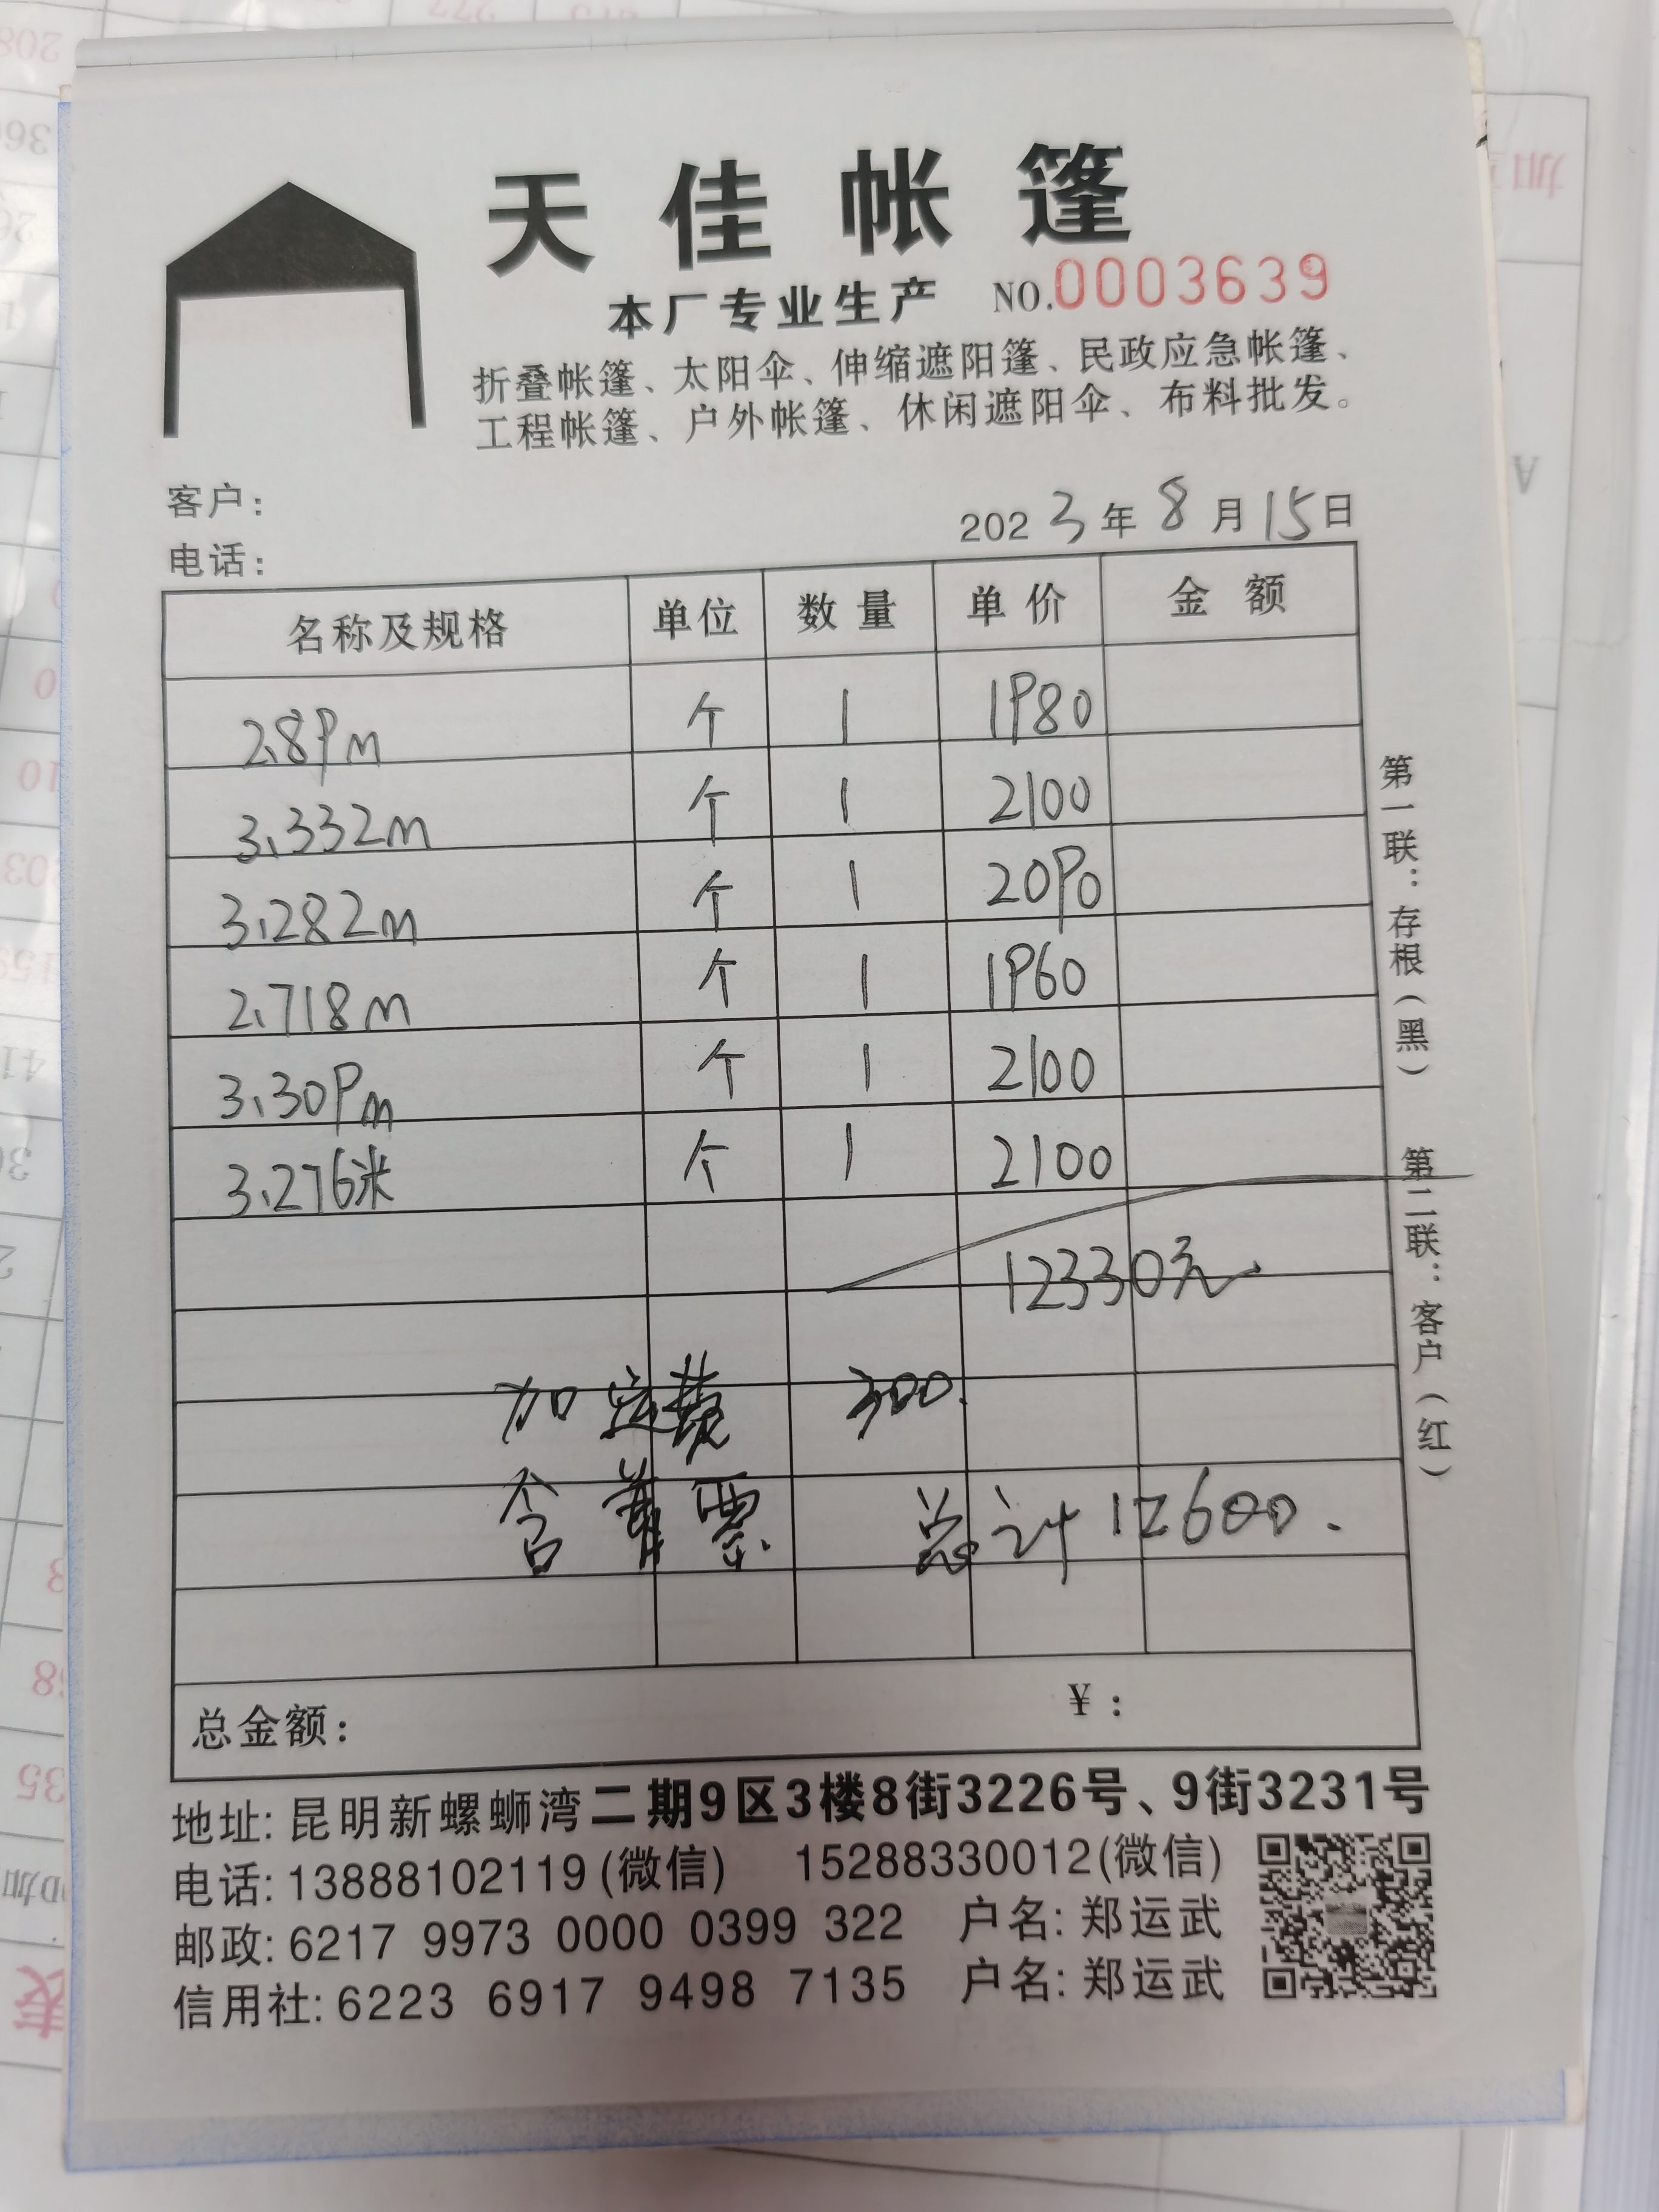 天佳帐篷
本厂专业生产 NO.0003639
折叠帐篷、太阳伞、伸缩遮阳篷、民政应急帐篷、
工程帐篷、户外帐篷、休闲遮阳伞、布料批发。
客户：
2023年8月15日
电话：
名称及规格 单位 数量 单价 金额
2.89m 个 1 1980
3.332m 个 1 2100
3.282m 个 1 2090
2.718m 个 1 1960
3.309m 个 1 2100
3.276米 个 1 2100
12330元
加运费 300.
含普票. 总计12600.
总金额： ¥：
第一联：存根（黑） 第二联：客户（红）
地址: 昆明新螺蛳湾二期9区3楼8街3226号、9街3231号
电话: 13888102119(微信) 15288330012(微信)
邮政: 6217 9973 0000 0399 322 户名: 郑运武
信用社: 6223 6917 9498 7135 户名: 郑运武